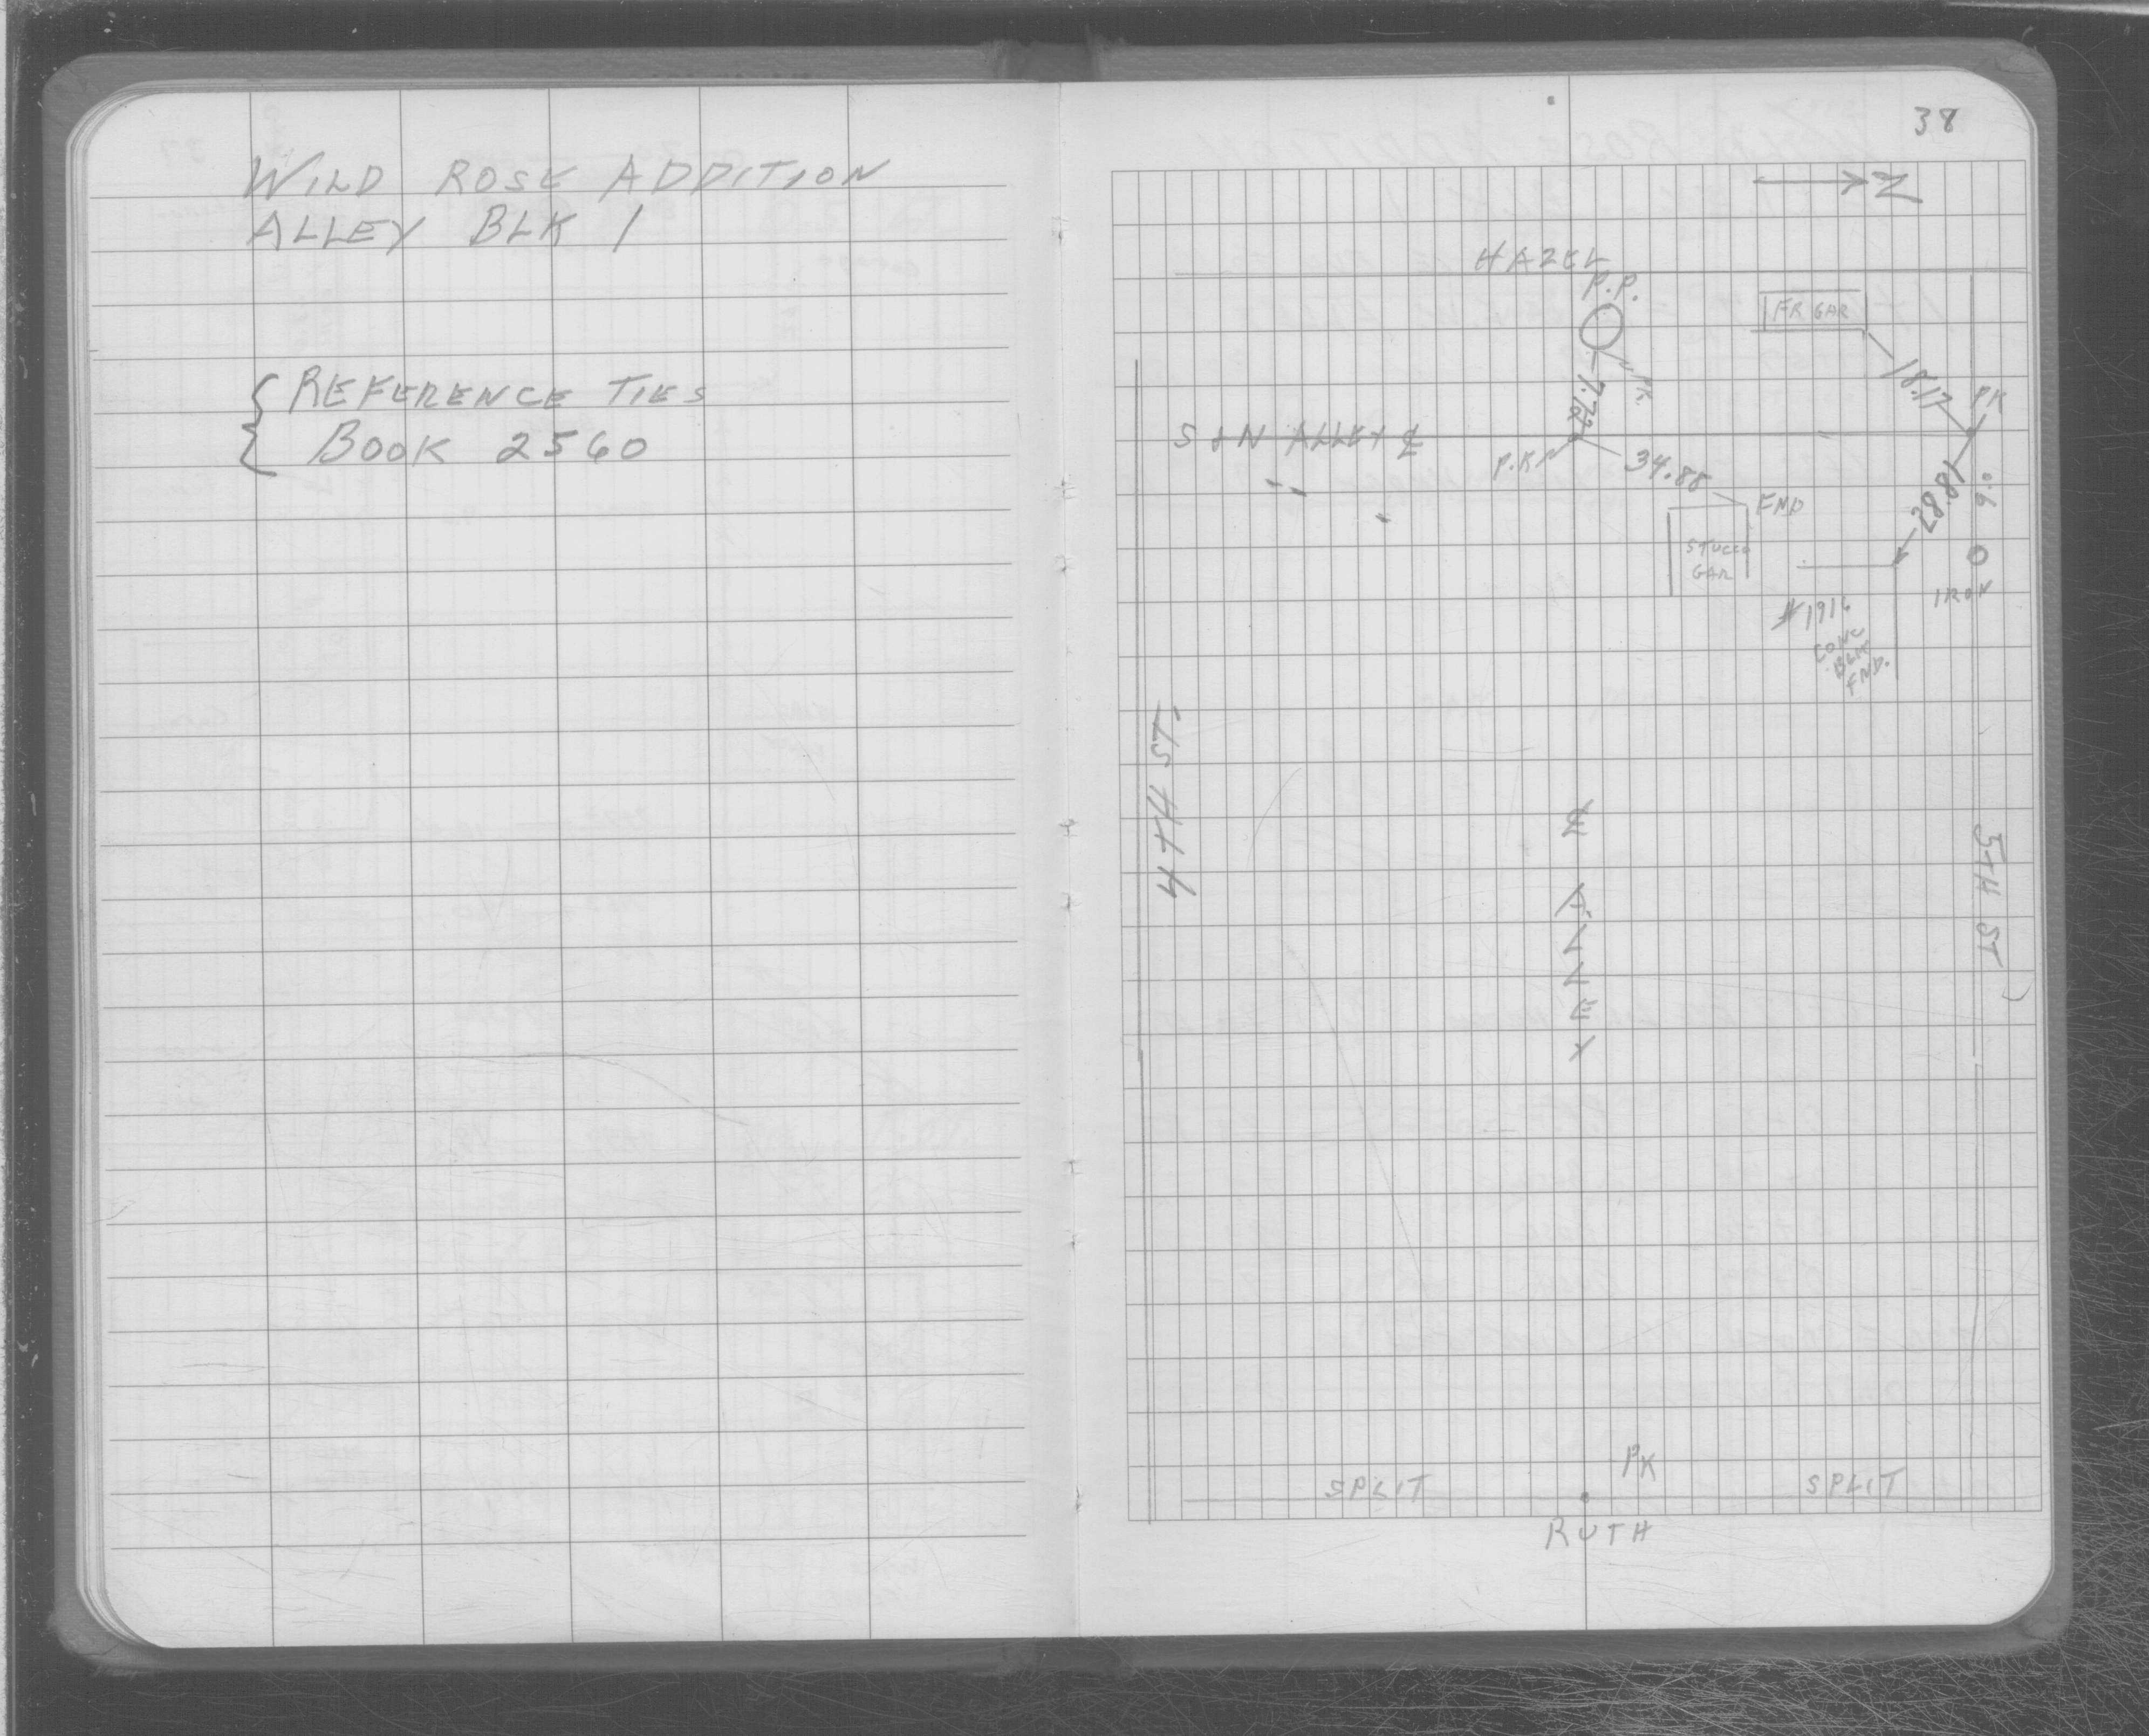 WILD ROSE ADDITION
ALLEY BLK 1
REFERENCE TIES
BOOK 2560
38
N
HAZEL
P.P.
FR GAR
7.72
P.K.
18.17
PK
S & N ALLEY ℄
P.K
34.88
FND
28.81
9.0
STUCCO
GAR
IRON
#1916
CONC
BLK
FND.
4TH ST.
℄ ALLEY
5TH ST
PK
SPLIT
SPLIT
RUTH